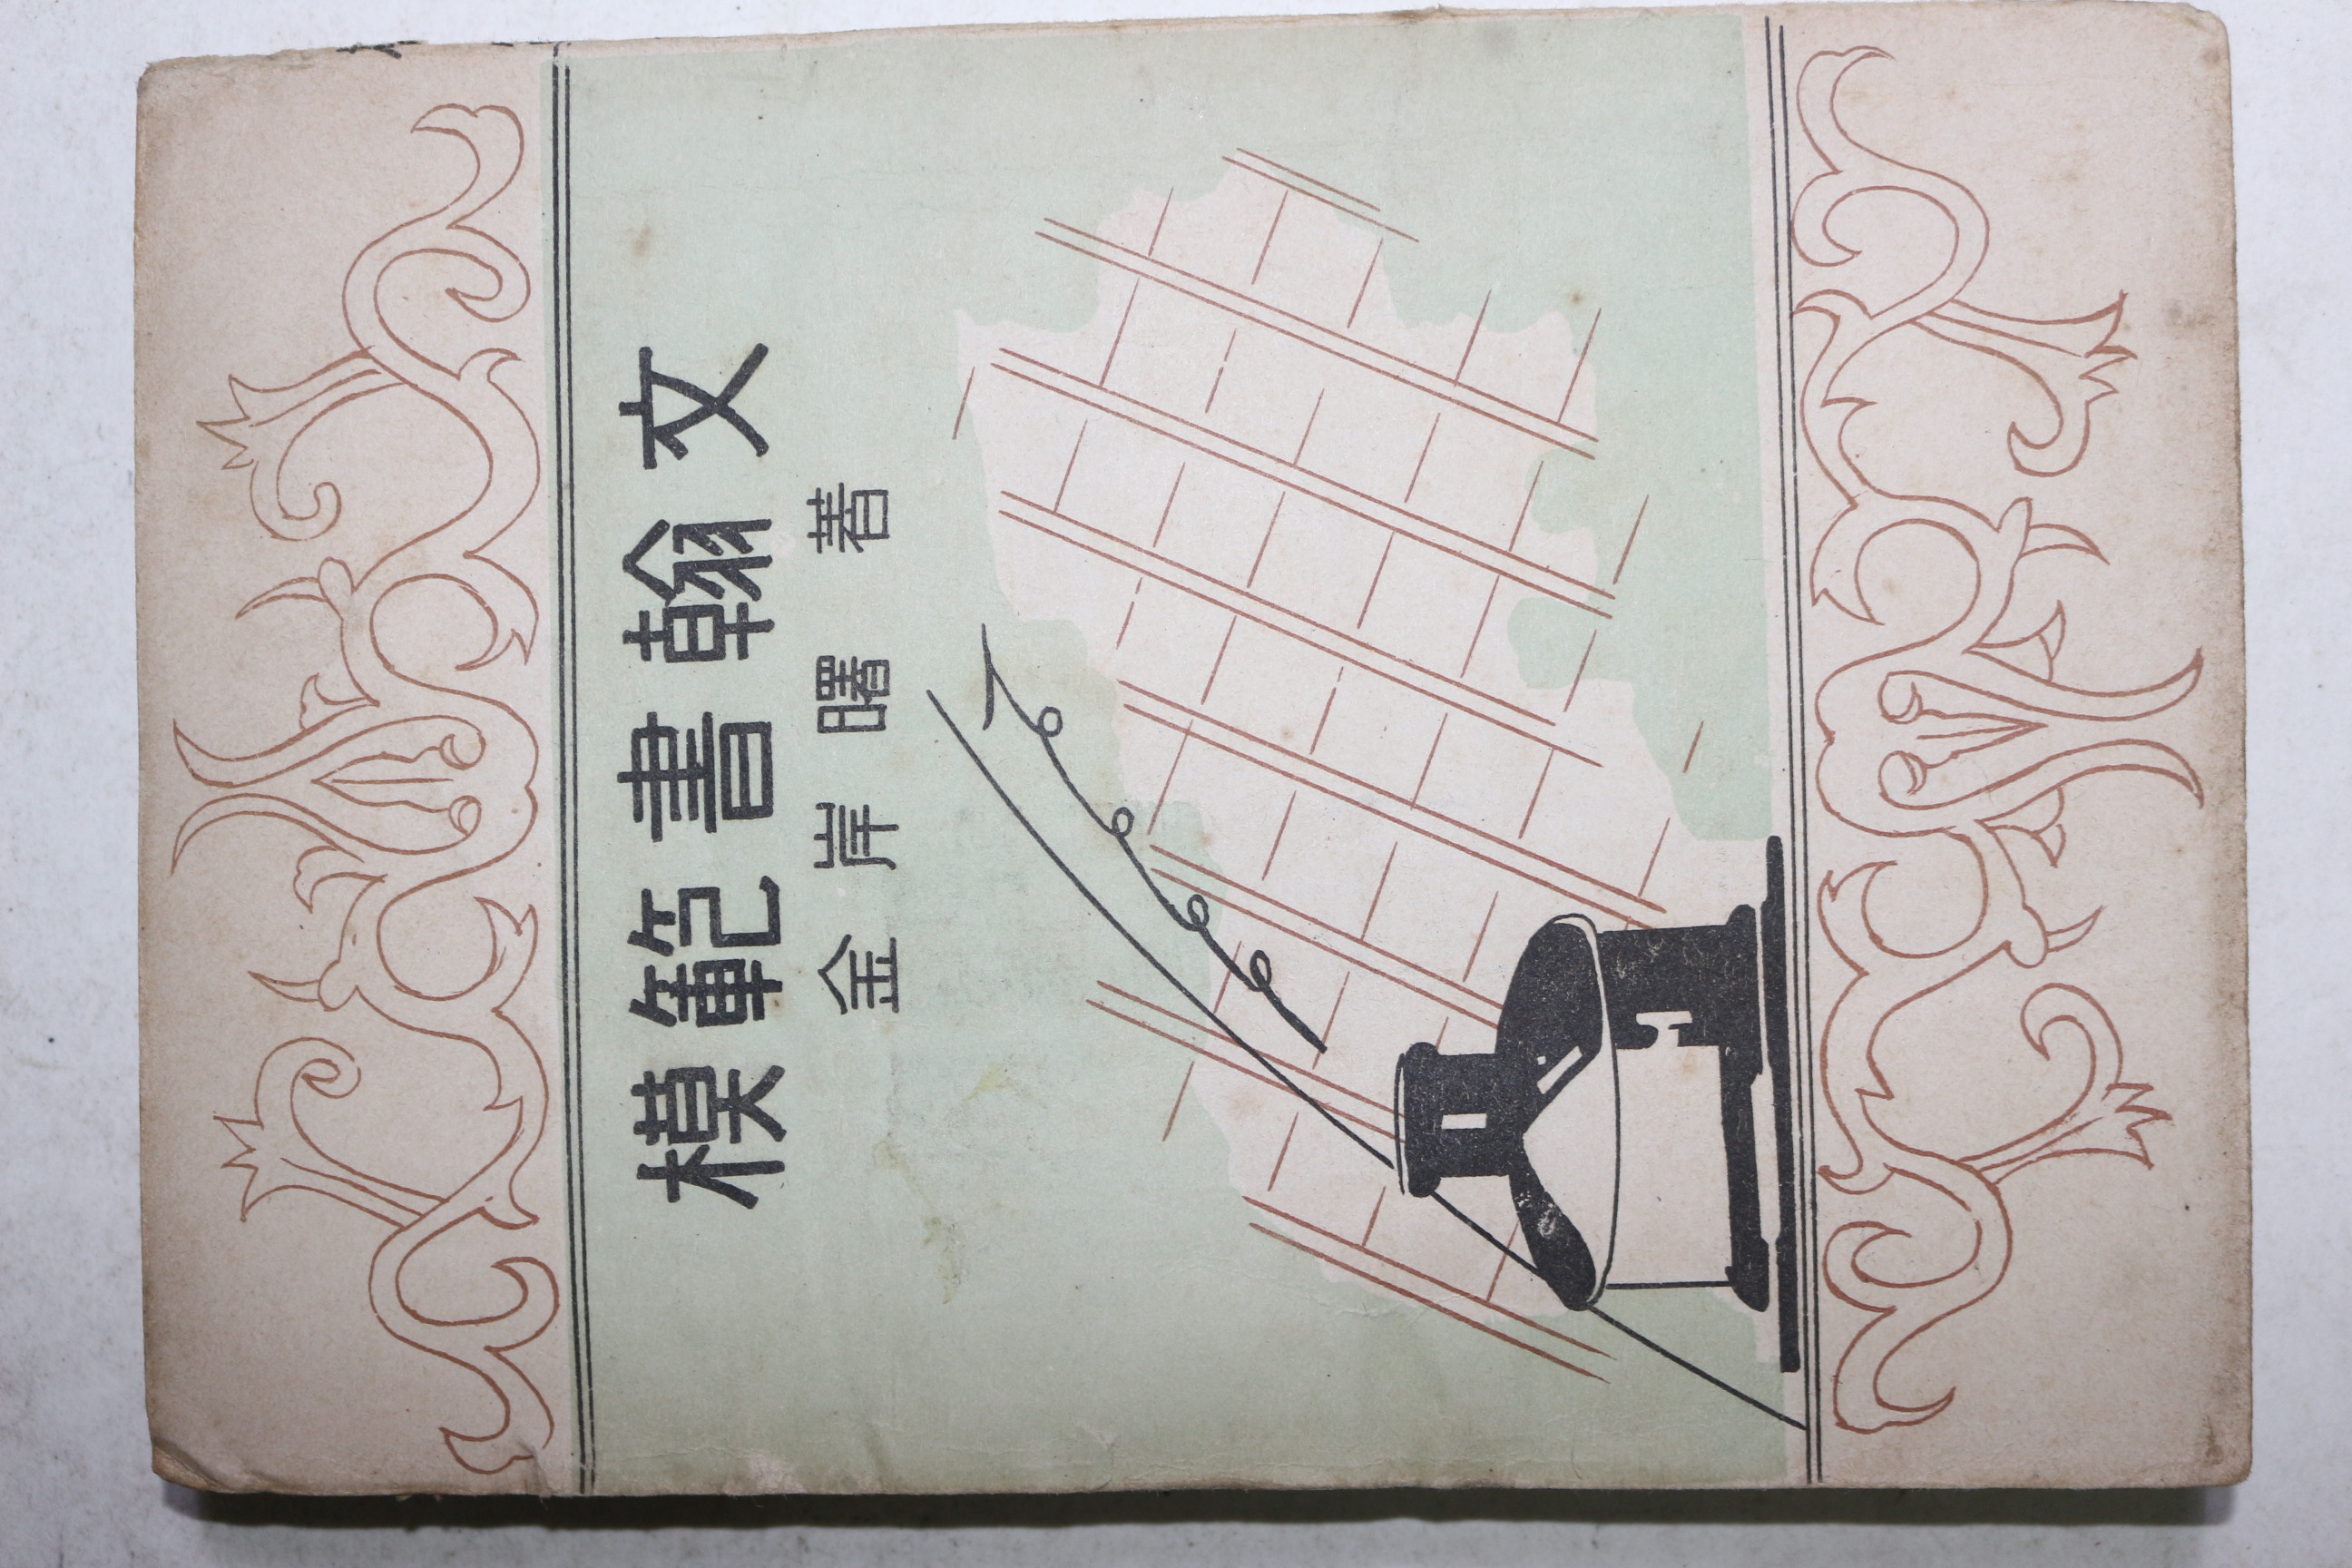 模範書翰文
金岸曙著